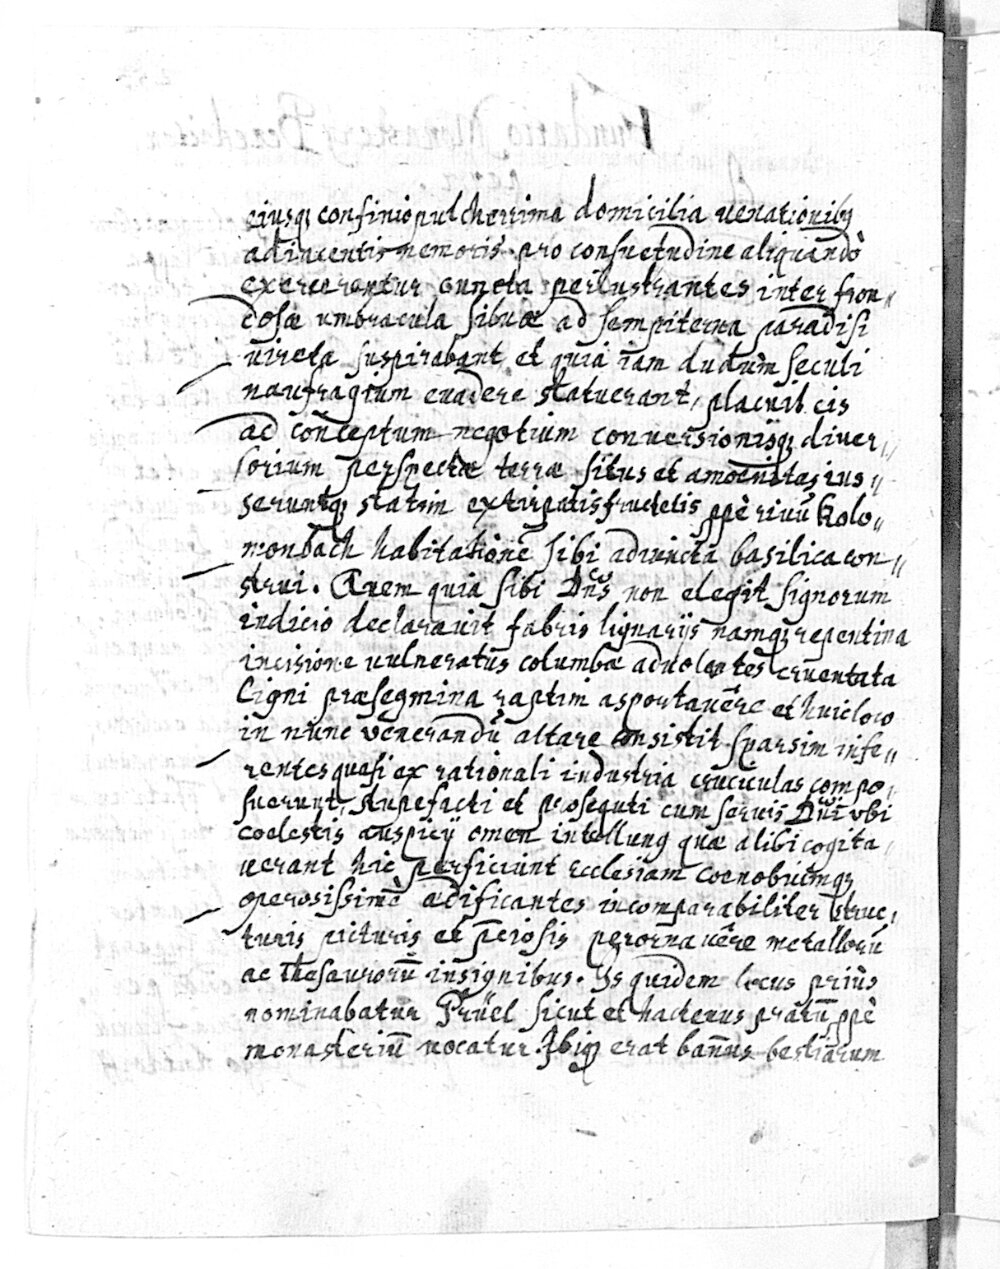 eiusq confinio pulcherrima domicilia uenationibq
adiacentis nemoris pro consuetudine aliquandò
exercerentur cuncta perlustrantes inter fron„
dosæ umbracula siluæ ad sempiterna paradisi
uireta suspirabant et quia iam dudum seculi
naufragium euadere statuerant, placuit eis
ad conceptum negotium conuersionisq diuer„
sorium perspectæ terræ situs et amoenitas ius„
seruntq statim extirpatis frutetis ppè riuū Kolo„
monbach habitationē sibi adiuncta basilica con„
strui. Quem quia sibi Dñs non elegit signorum
indicio declarauit fabris lignarijs namq repentina
incisione uulneratis columbæ aduolantes cruentata
ligni præsegmina raptim asportauêre et huic loco
in nunc venerandū altare consistit sparsim infe„
rentes quasi ex rationali industria cruciculas compo„
suerunt, stupefacti et prosequti cum seruis Dñi vbi
coelestis auspicij omen intellung quæ alibi cogita„
uerant hic perficiunt ecclesiam coenobiumq
operosissimè ædificantes incomparabiliter struc„
turis picturis et p̄ciosis perornauêre metallorū
ac thesaurorū insignibus. Is quidem locus priùs
nominabatur Prüel sicut et hactenus pratū ppè
monasteriū uocatur. Ibiq erat bañus bestiarum